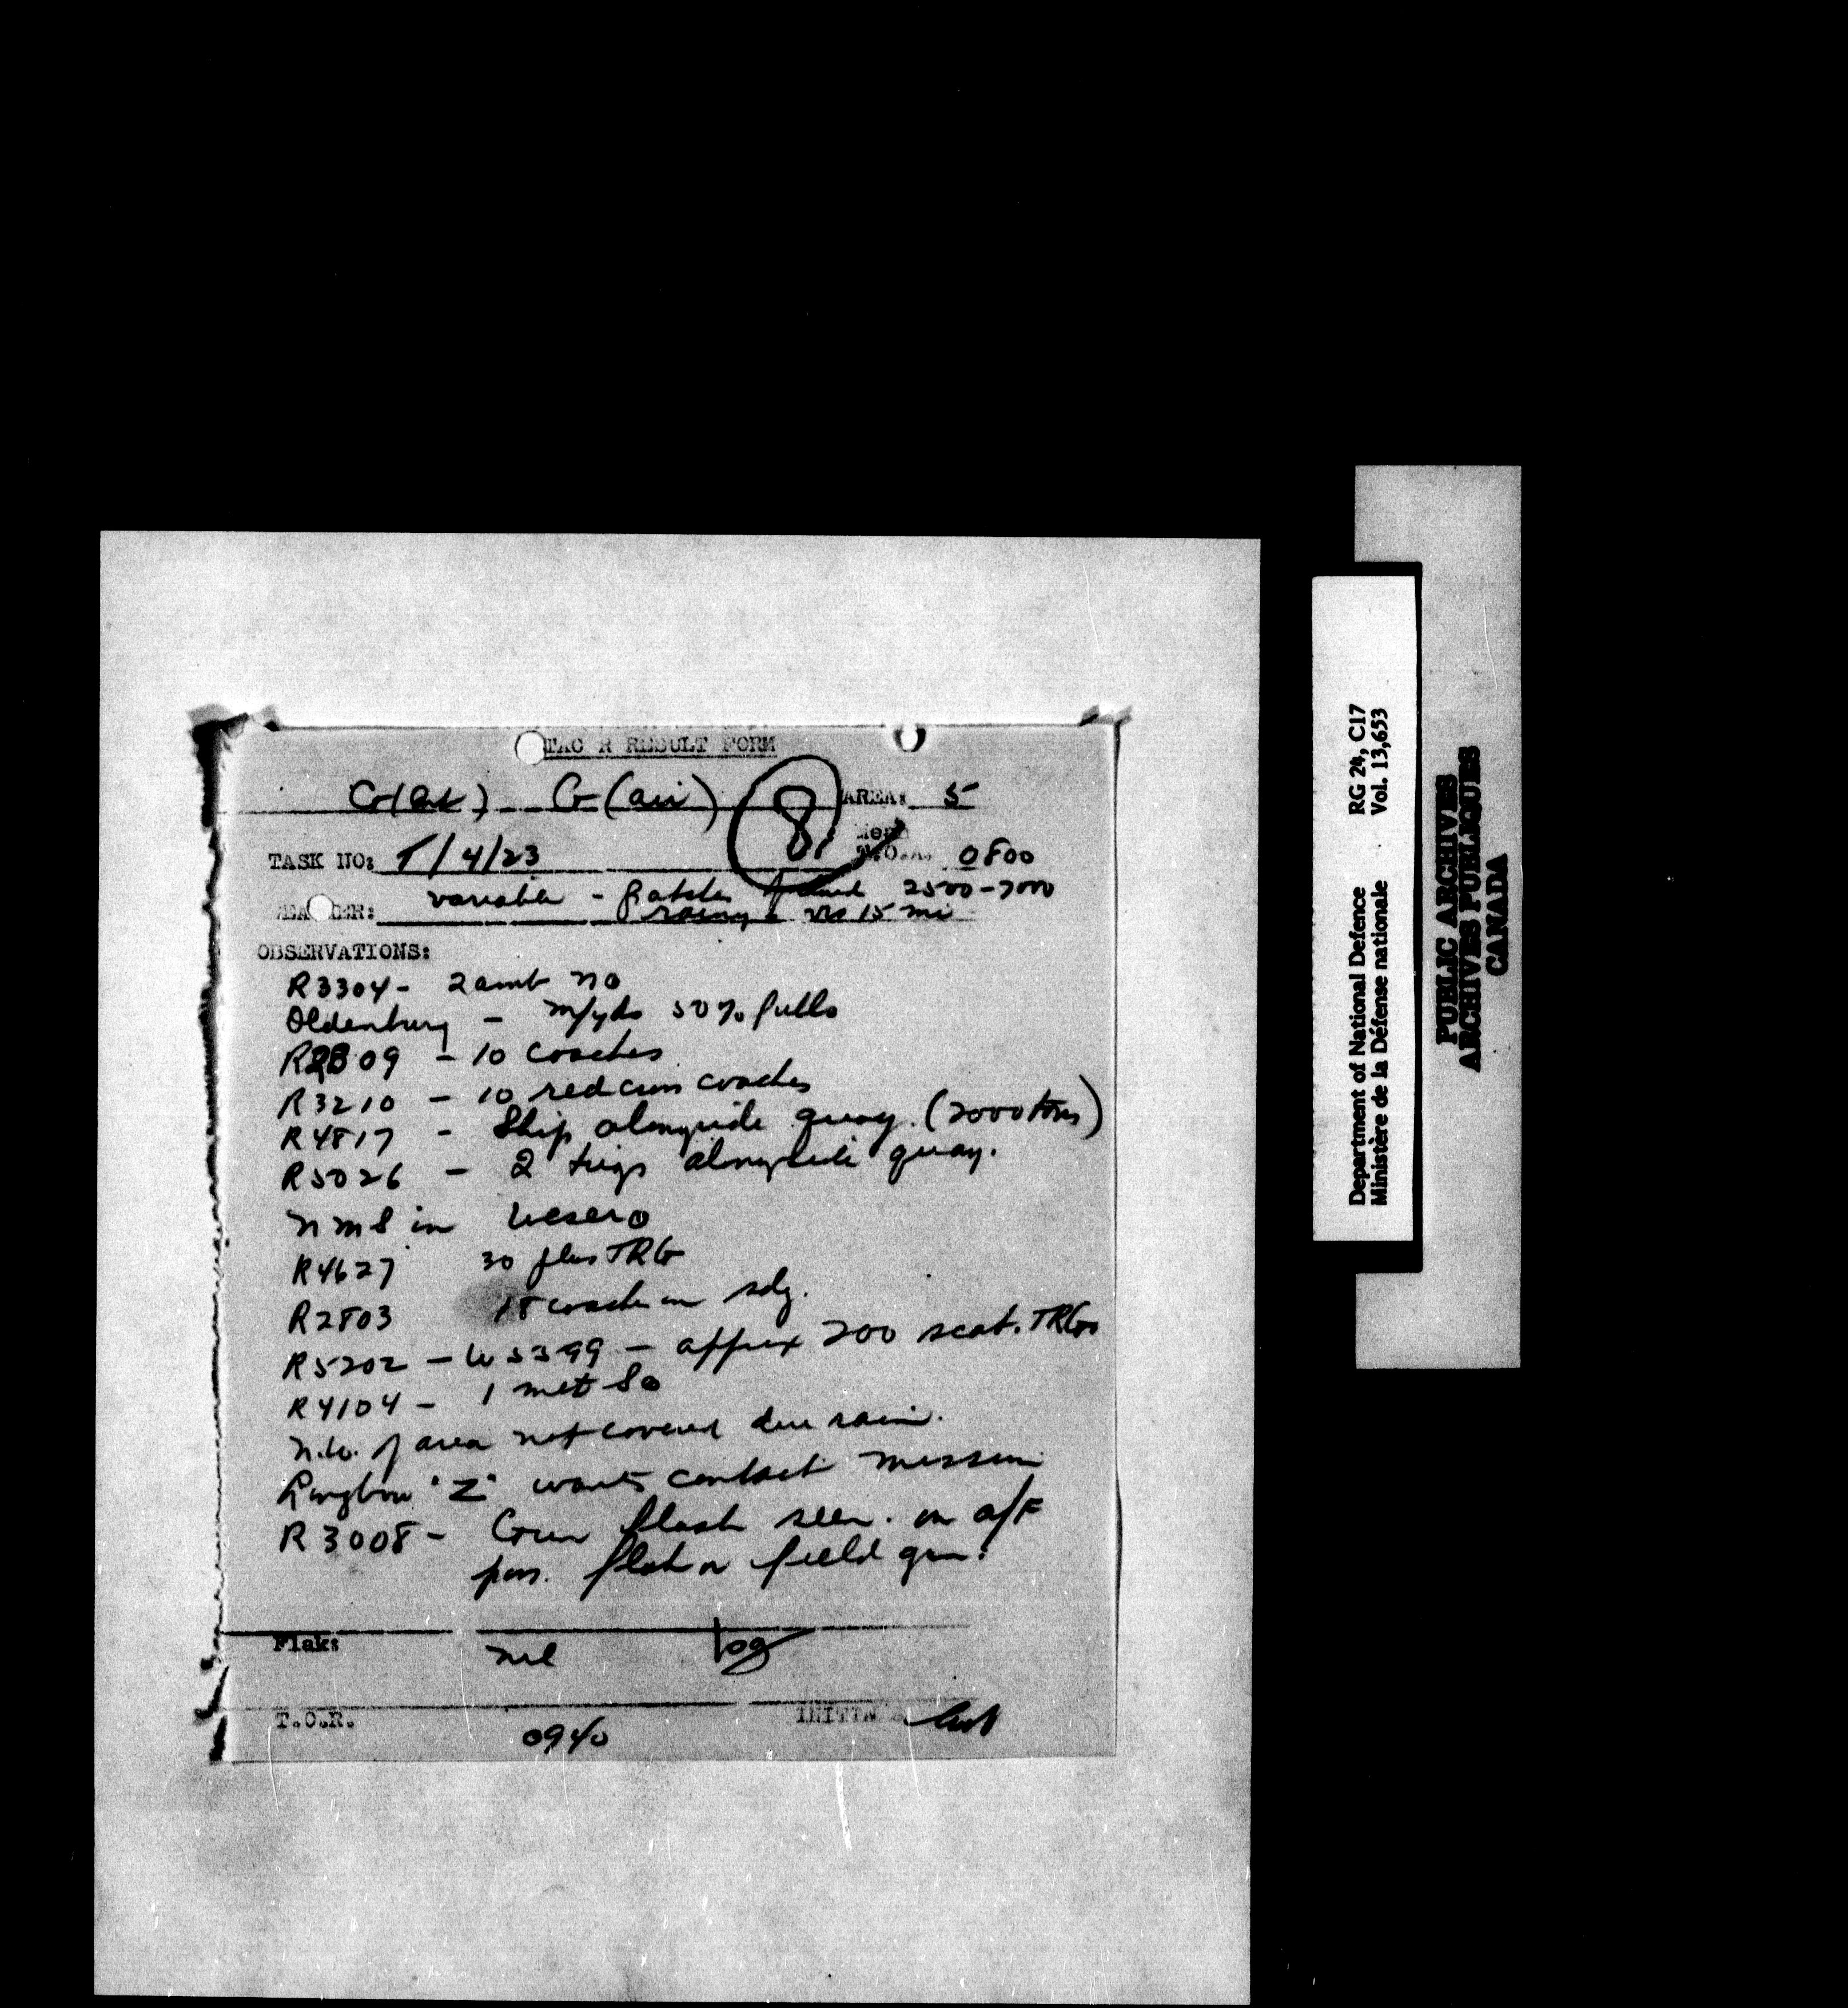 TAC R RESULT FORM
G (Int) G (air) 8. AREA: 5
TASK NO: T/4/23 T.O.A. 0800
variable - patches cloud 2500-7000
WEATHER: rainy vis 15 mi
OBSERVATIONS:
R3304 - 2 amb no
Oldenburg - m/yds 50% fulls
R2809 - 10 coaches
R3210 - 10 red cross coaches
R4817 - Ship alongside quay. (2000 tons)
R5026 - 2 tugs alongside quay.
n m s in Weser
R4627 30 plus TRG
R2803 18 coaches on sdg.
R5202 - W5399 - approx 200 scat. TRGs
R4104 - 1 met So
N.W. of area not covered due rain.
Longbow "Z" wants contact mission
R3008 - Gun flash seen. on a/F
pos. flak or field gun.
Flak: nil log
T.O.R. 0940 INITIALS
Department of National Defence RG 24, C17
Ministère de la Défense nationale Vol. 13,653
PUBLIC ARCHIVES
ARCHIVES PUBLIQUES
CANADA